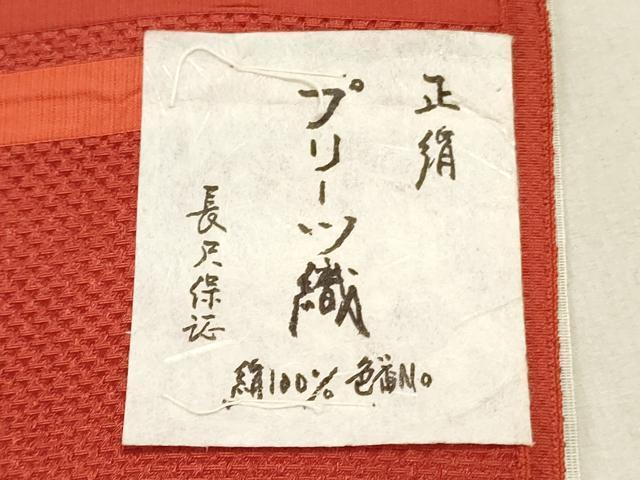 正絹
プリーツ織
長尺保証
絹100% 色番No